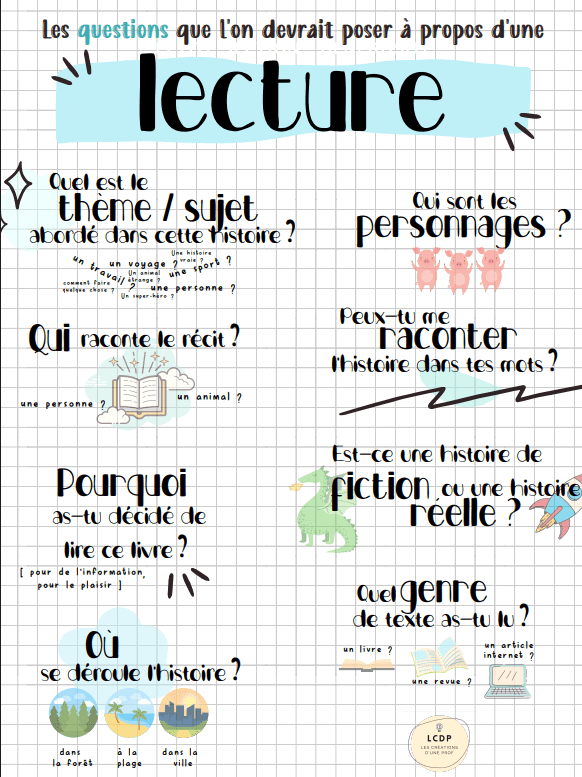 Les questions que l'on devrait poser à propos d'une
lecture
Quel est le
thème / sujet
abordé dans cette histoire ?
Une histoire
vraie ?
un voyage ?
un travail ?
Un animal
étrange ?
une sport ?
comment faire
quelque chose ?
une personne ?
Un super-héro ?
Qui raconte le récit ?
une personne ?
un animal ?
Pourquoi
as-tu décidé de
lire ce livre ?
[ pour de l'information,
pour le plaisir ]
Où
se déroule l'histoire ?
dans
la forêt
à la
plage
dans la
ville
Qui sont les
personnages ?
Peux-tu me
raconter
l'histoire dans tes mots ?
Est-ce une histoire de
fiction ou une histoire
réelle ?
Quel genre
de texte as-tu lu ?
un livre ?
une revue ?
un article
internet ?
LCDP
LES CRÉATIONS
D'UNE PROF